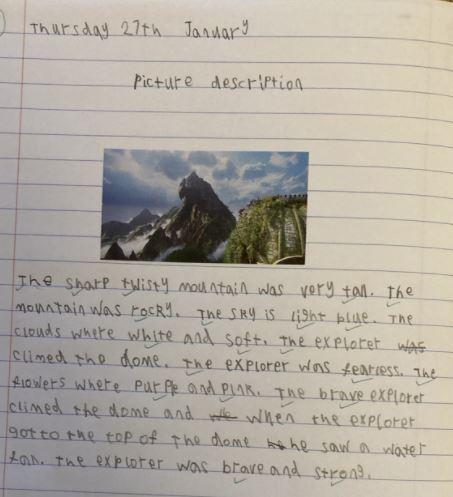 Thursday 27th January
Picture description
The sharp twisty mountain was very tall. The
mountain was rocky. The sky is light blue. The
clouds where white and soft. The explorer was
climed the dome. The explorer was fearless. The
flowers where purple and pink. The brave explorer
climed the dome and when the explorer
got to the top of the dome he saw a water
fall. The explorer was brave and strong.